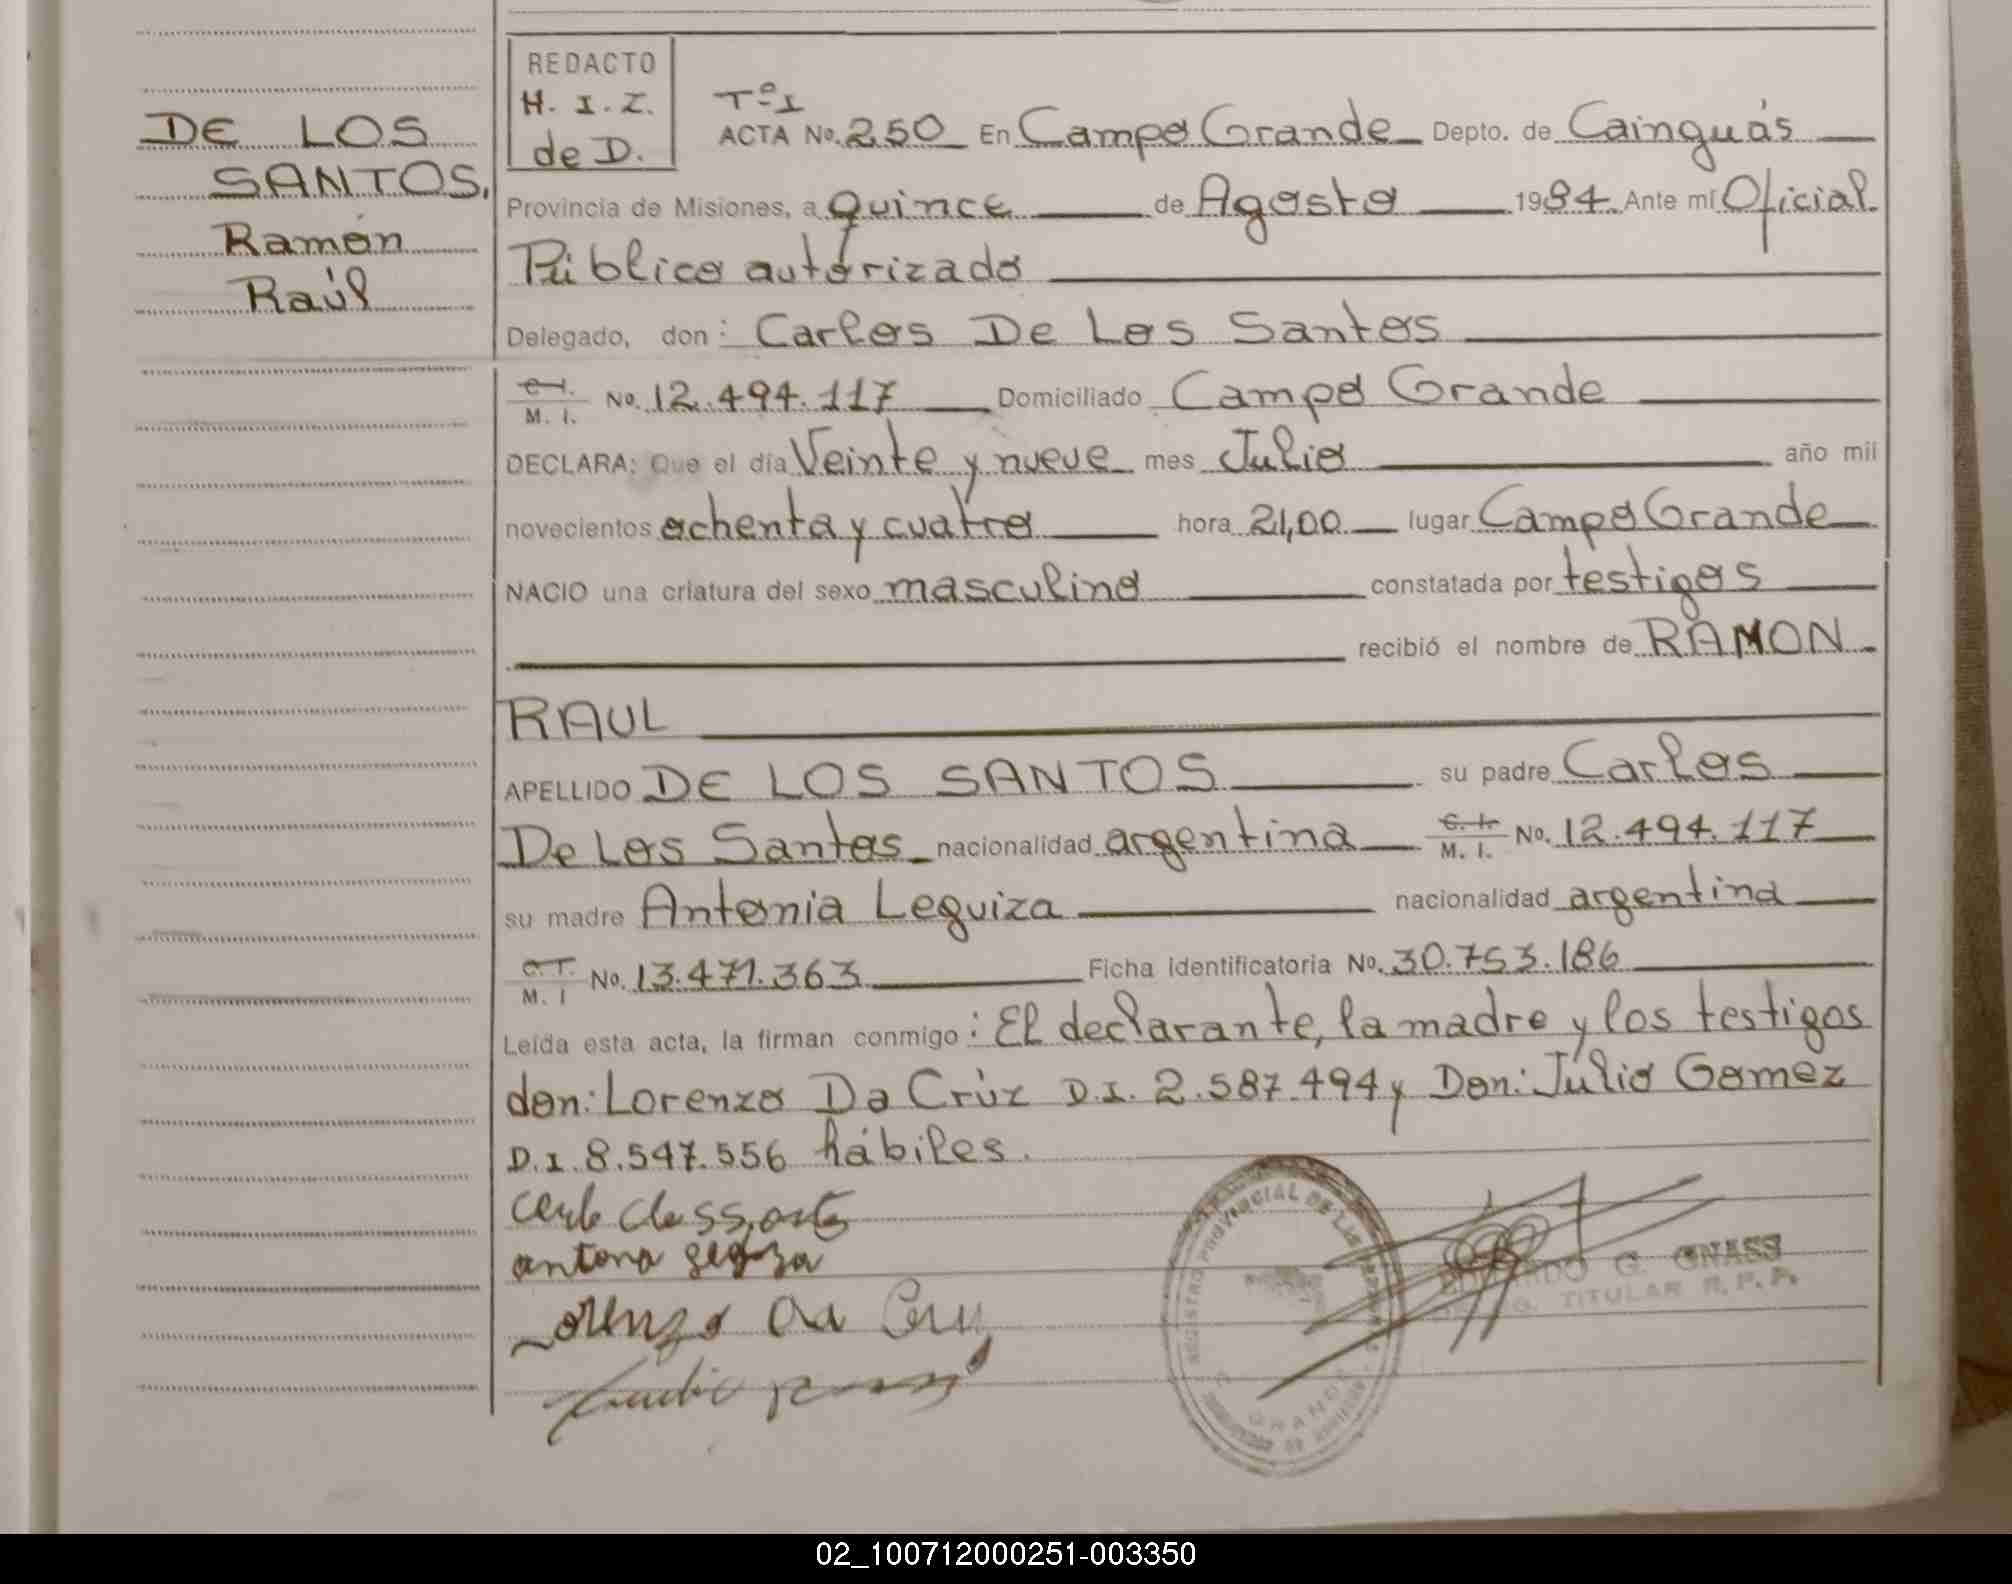 DE LOS
SANTOS,
Ramón
Raúl
REDACTO
H. I. Z.
de D.
Tº I
ACTA No. 250 En Campo Grande Depto. de Cainguás
Provincia de Misiones, a quince de Agosto 1984. Ante mí Oficial
Público autorizado
Delegado, don: Carlos De Los Santos
C.I. M. I. No. 12.494.117 Domiciliado Campo Grande
DECLARA: Que el día Veinte y nueve mes Julio año mil
novecientos ochenta y cuatro hora 21,00 lugar Campo Grande
NACIO una criatura del sexo masculino constatada por testigos
recibió el nombre de RAMON
RAUL
APELLIDO DE LOS SANTOS su padre Carlos
De Los Santos nacionalidad argentina C.I. M. I. No. 12.494.117
su madre Antonia Leguiza nacionalidad argentina
C.I. M. I No. 13.471.363 Ficha identificatoria No. 30.753.186
Leída esta acta, la firman conmigo: El declarante, la madre y los testigos
don: Lorenzo Da Crúz D.I. 2.587.494 y Don: Júlio Gomez
D.I. 8.547.556 hábiles.
Lorenzo Da Cru
REGISTRO PROVINCIAL DE LAS PERSONAS
GRANDE
G. GNASS
TITULAR R. P. P.
02_100712000251-003350